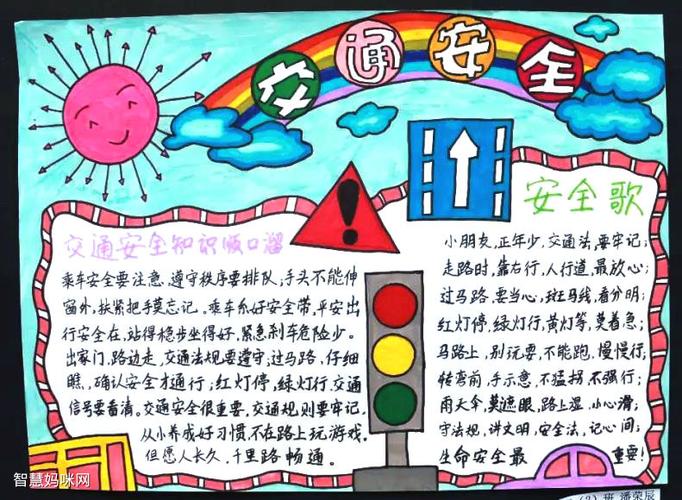 交通安全
交通安全知识顺口溜
乘车安全要注意,遵守秩序要排队,手头不能伸
窗外,扶紧把手莫忘记。乘车系好安全带,平安出
行安全在,站得稳步坐得好,紧急刹车危险少。
出家门,路边走,交通法规要遵守;过马路,仔细
瞧,确认安全才通行;红灯停,绿灯行,交通
信号要看清。交通安全很重要,交通规则要牢记,
从小养成好习惯,不在路上玩游戏。
但愿人长久,千里路畅通。
安全歌
小朋友,正年少,交通法,要牢记;
走路时,靠右行,人行道,最放心;
过马路,要当心,斑马线,看分明;
红灯停,绿灯行,黄灯等,莫着急;
马路上,别玩耍,不能跑,慢慢行;
转弯前,手示意,不猛拐,不强行;
雨天伞,莫遮眼,路上湿,小心滑;
守法规,讲文明,安全法,记心间;
生命安全最重要!
(2)班 潘荣辰
智慧妈咪网